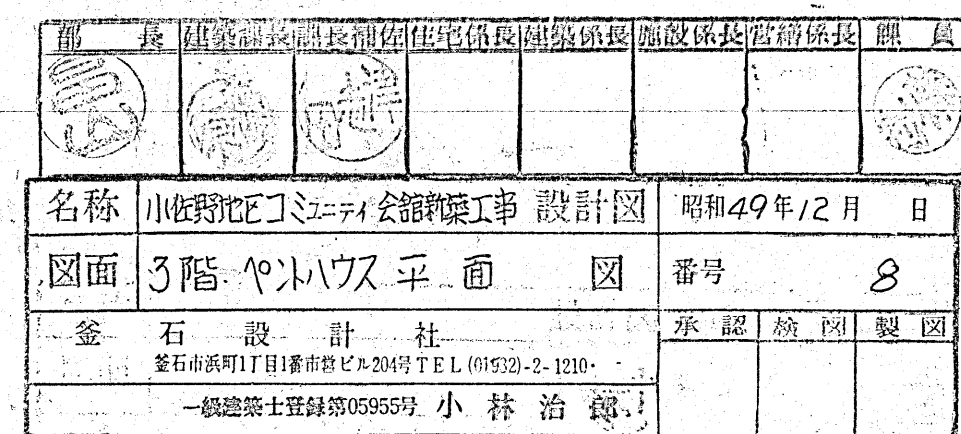 部長 建築課長 課長補佐 住宅係長 建築係長 施設係長 営繕係長 課員
名称 小佐野地区コミュニティ会館新築工事 設計図 昭和49年12月 日
図面 3階 ペントハウス 平面図 番号 8
釜石設計社 承認 検図 製図
釜石市浜町1丁目1番市営ビル204号 TEL (01932)-2-1210
一級建築士登録第05955号 小林治郎